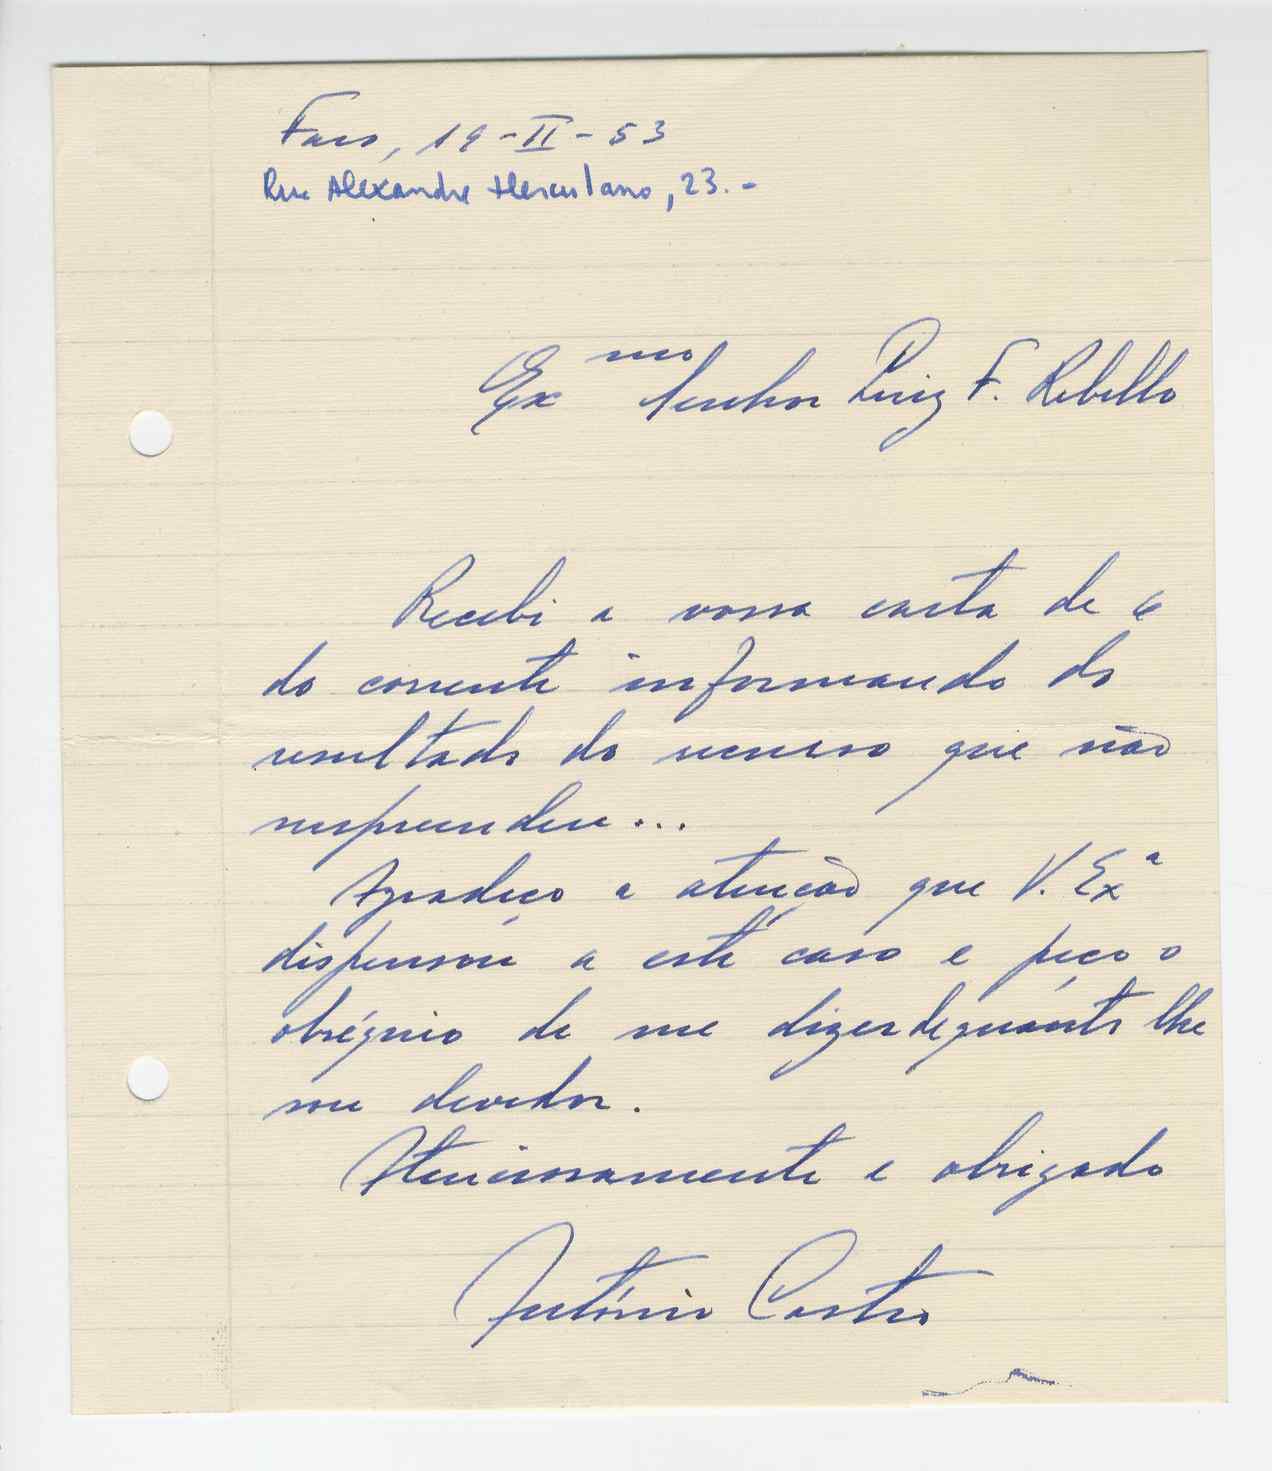 Faro, 19-II-53
Rua Alexandre Herculano, 23.-
Exmo Senhor Luiz F. Rebello
Recebi a vossa carta de 6
do corrente informando do
resultado do recurso que não
surpreendeu...
Agradeço a atenção que V. Exª
dispensou a este caso e peço o
obséquio de me dizer de quanto lhe
sou devedor.
Atenciosamente e obrigado
António Castro